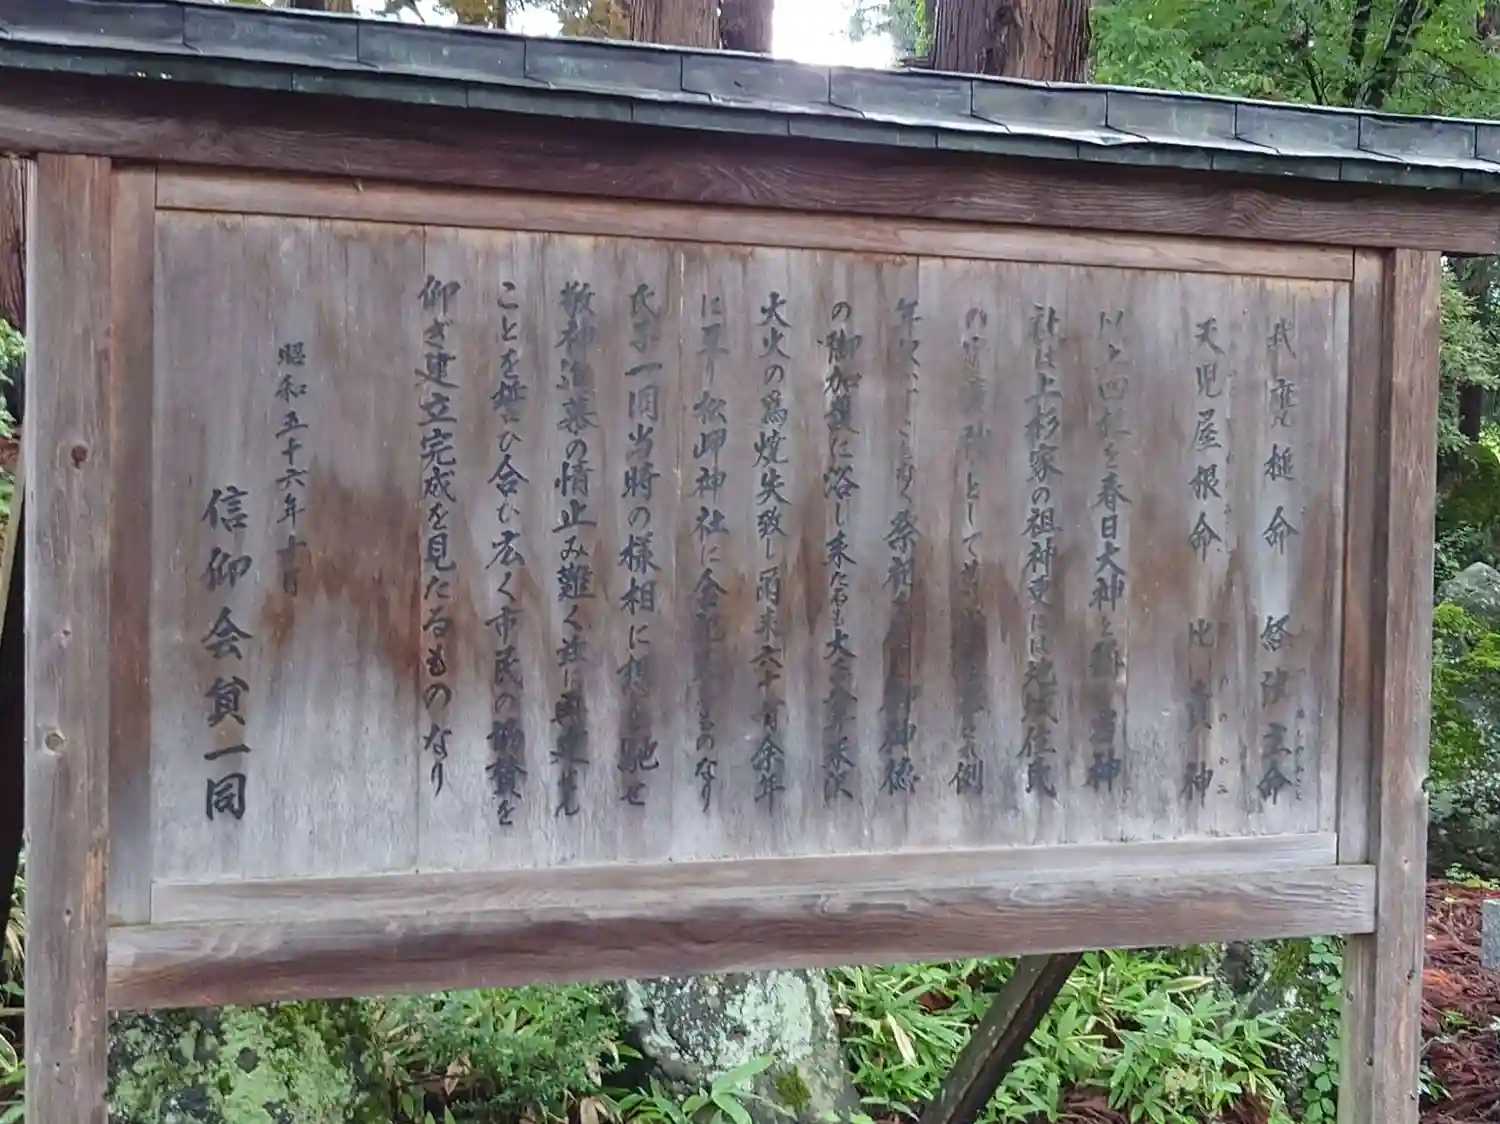 武甕槌命 経津主命
天児屋根命 比売神
以上四柱を春日大神と 神
社は上杉家の祖神更には地域住民
の 神として 例
年 ことなく祭祀 御神徳
の御加護に浴し来たるも大正 年米沢
大火の為焼失致し爾来六十有余年
に亘り松岬神社に合祀 ものなり
氏子一同当時の様相に想を馳せ
敬神追慕の情止み難く茲に再建せん
ことを誓ひ合ひ広く市民の協賛を
仰ぎ建立完成を見たるものなり
昭和五十六年十月
信仰会員一同